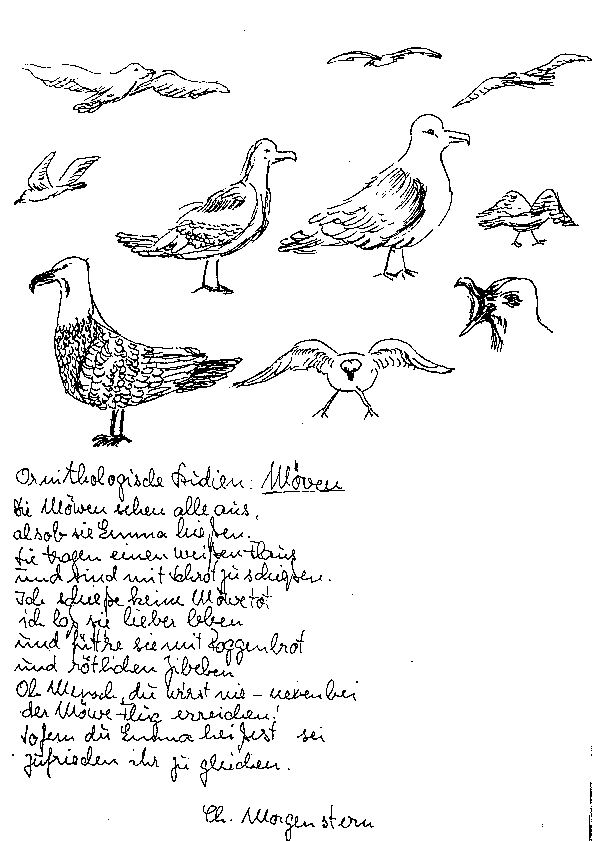 Ornithologische Studien: Möven
Die Möwen sehen alle aus,
als ob sie Emma hießen.
Sie tragen einen weißen Flaus
und sind mit Schrot zu schießen.
Ich schieße keine Möwe tot
ich laß sie lieber leben
und füttre sie mit Roggenbrot
und rötlichen Zibeben
Oh Mensch, du wirst nie - nebenbei
der Möwe Flug erreichen!
Sofern du Emma heißest sei
zufrieden ihr zu gleichen.
Ch. Morgenstern